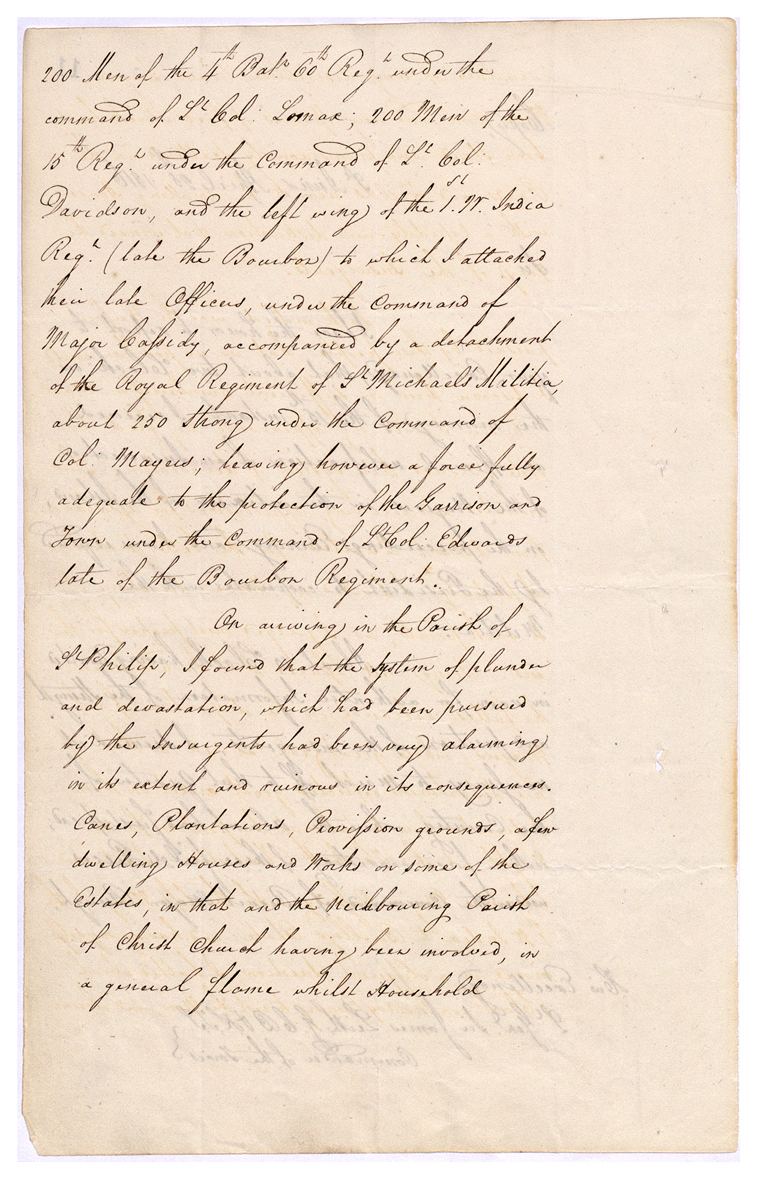 200 Men of the 4th Bat.n 60th Reg.t under the
command of Lt Col: Lomax; 200 Men of the
15th Reg.t under the Command of Lt. Col:
Davidson, and the left wing of the 1.st W. India
Reg.t (late the Bourbon) to which I attached
their late Officers, under the Command of
Major Cassidy, accompanied by a detachment
of the Royal Regiment of St Michael's Militia,
about 250 strong under the Command of
Col: Mayers; leaving however a force fully
adequate to the protection of the Garrison and
Town under the Command of Lt Col: Edwards
late of the Bourbon Regiment.
On arriving in the Parish of
St Philip, I found that the system of plunder
and devastation, which had been pursued
by the Insurgents had been very alarming
in its extent and ruinous in its consequences.
Canes, Plantations, Provission grounds, a few
dwelling Houses and Works on some of the
Estates, in that and the neihbouring Parish
of Christ Church having been involved, in
a general flame whilst Household